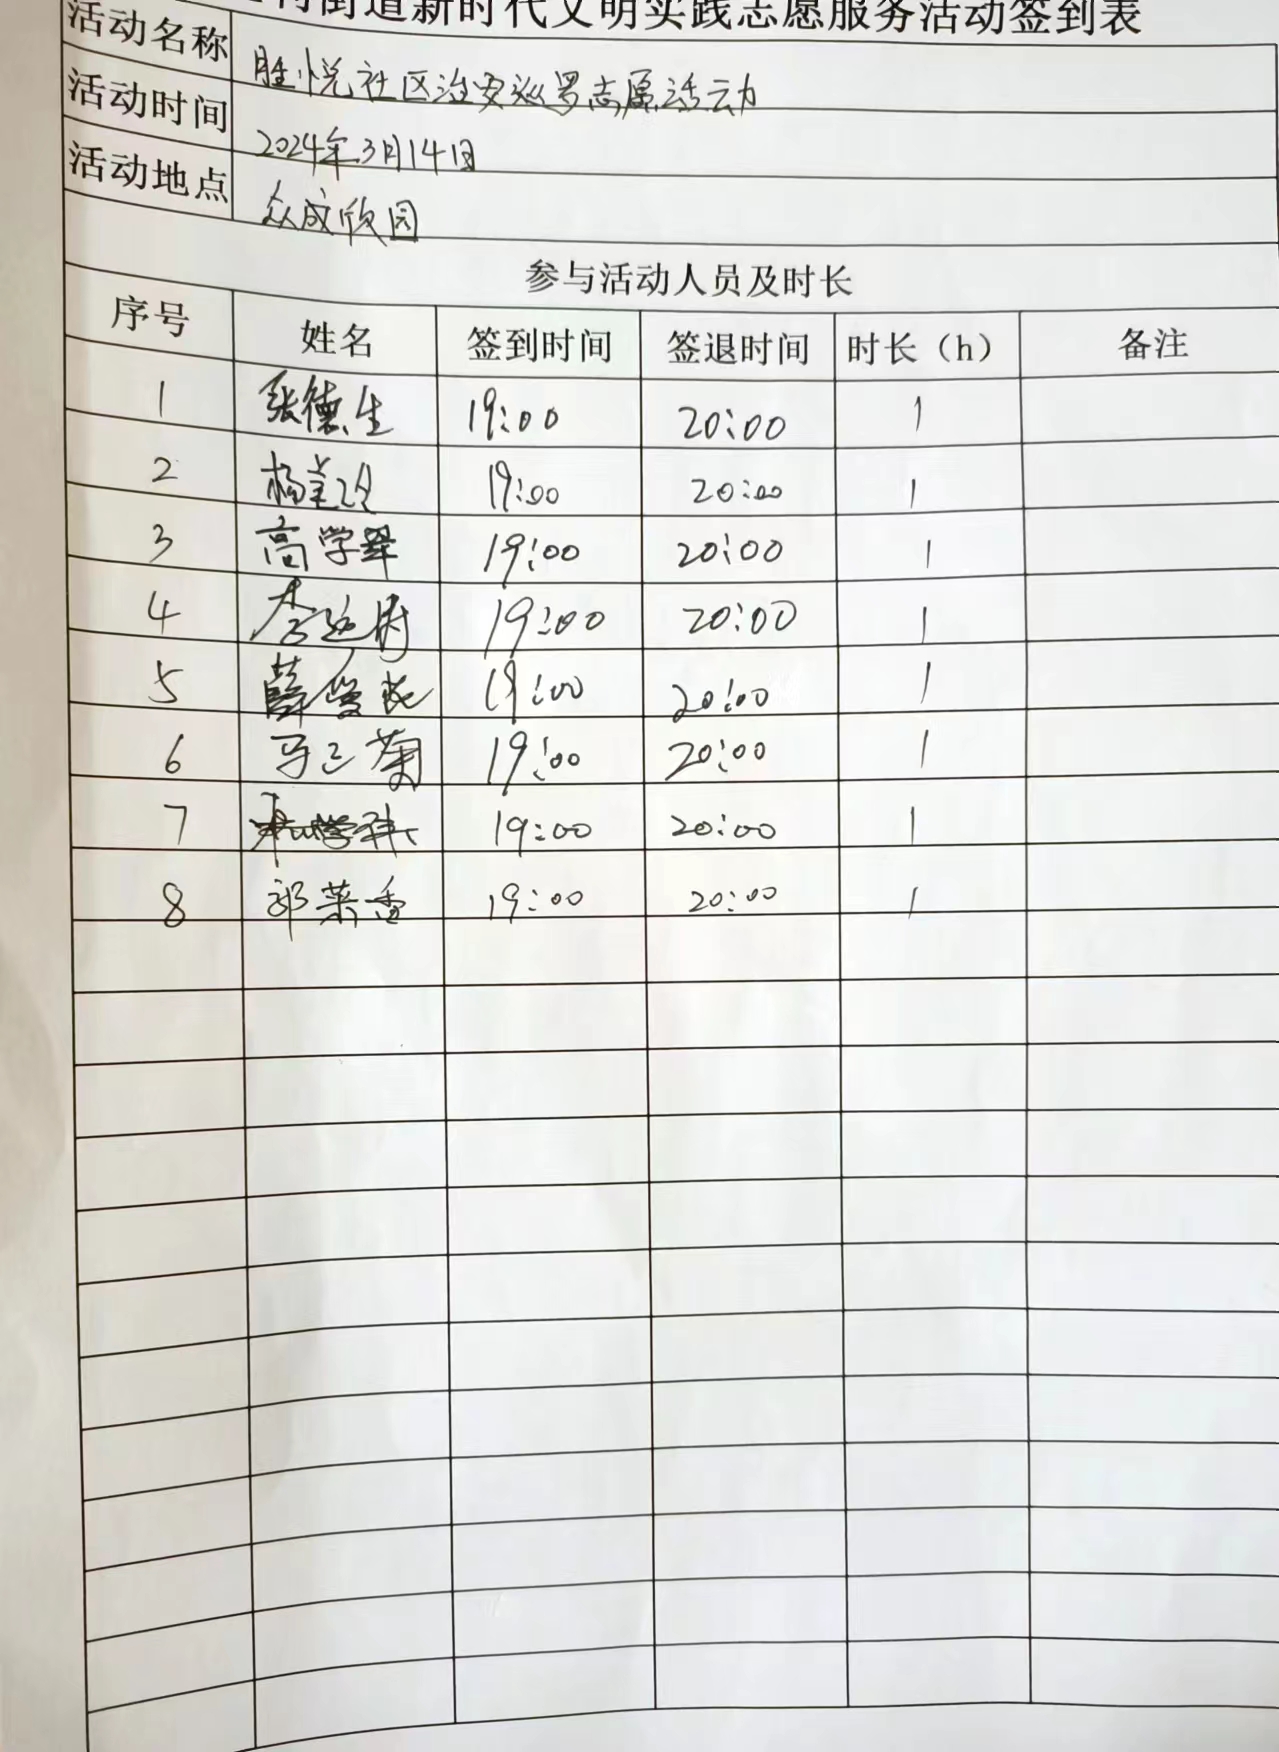 街道新时代文明实践志愿服务活动签到表
活动名称 胜悦社区治安巡罗志愿活动
活动时间 2024年3月14日
活动地点 众成欣园
参与活动人员及时长
序号 姓名 签到时间 签退时间 时长（h） 备注
1 张德生 19:00 20:00 1
2 杨 19:00 20:00 1
3 高学翠 19:00 20:00 1
4 李 19:00 20:00 1
5 薛 19:00 20:00 1
6 马三菊 19:00 20:00 1
7 19:00 20:00 1
8 郭莱香 19:00 20:00 1